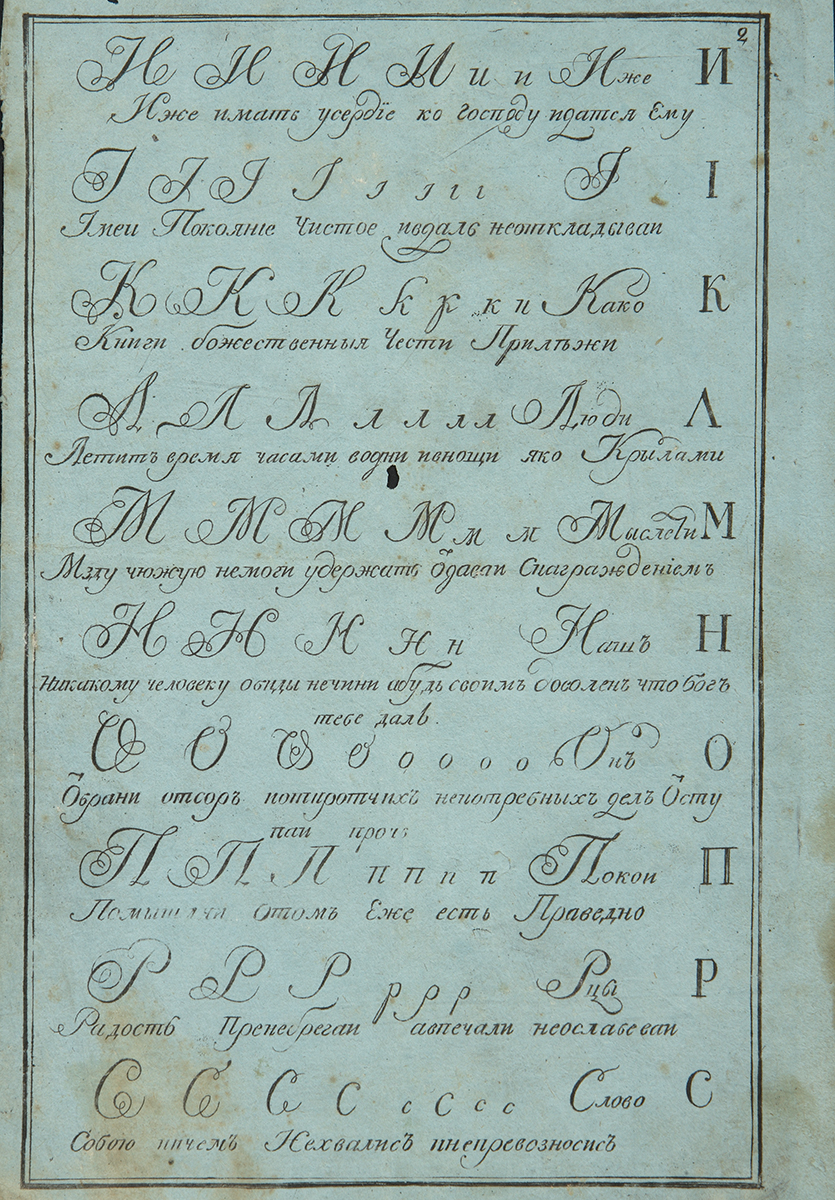 2
И И И И и и Иже И
Иже имать усердїе ко господу идатся Ему
І І І І і і і і І І
Імеи Покояние Чистое ивдаль неоткладываи
К К К к к к к Како К
Книги божественныя Чести Прилѣжи
Л Л Л л л л л Люди Л
Летитъ время часами водни ивнощи яко Крылами
М М М М м м Мыслети М
Мзду чюжую немоги удержать Ѿдаваи Снаграждениемъ
Н Н Н н н Нашъ Н
Никакому человеку обиды нечини абудь своимъ доволенъ что богъ
тебе далъ.
О О О О о о о о Онъ О
Ѿбрани отсоръ инепотребныхъ делъ Ѿсту
паи прочь
П П П п п п п Покои П
Помышляи Отомъ Еже есть Праведно
Р Р Р р р р Рцы Р
Радость Пренебрегаи авпечали неослабеваи
С С С С с С с с Слово С
Собою ничемъ Нехвались инепревозносись